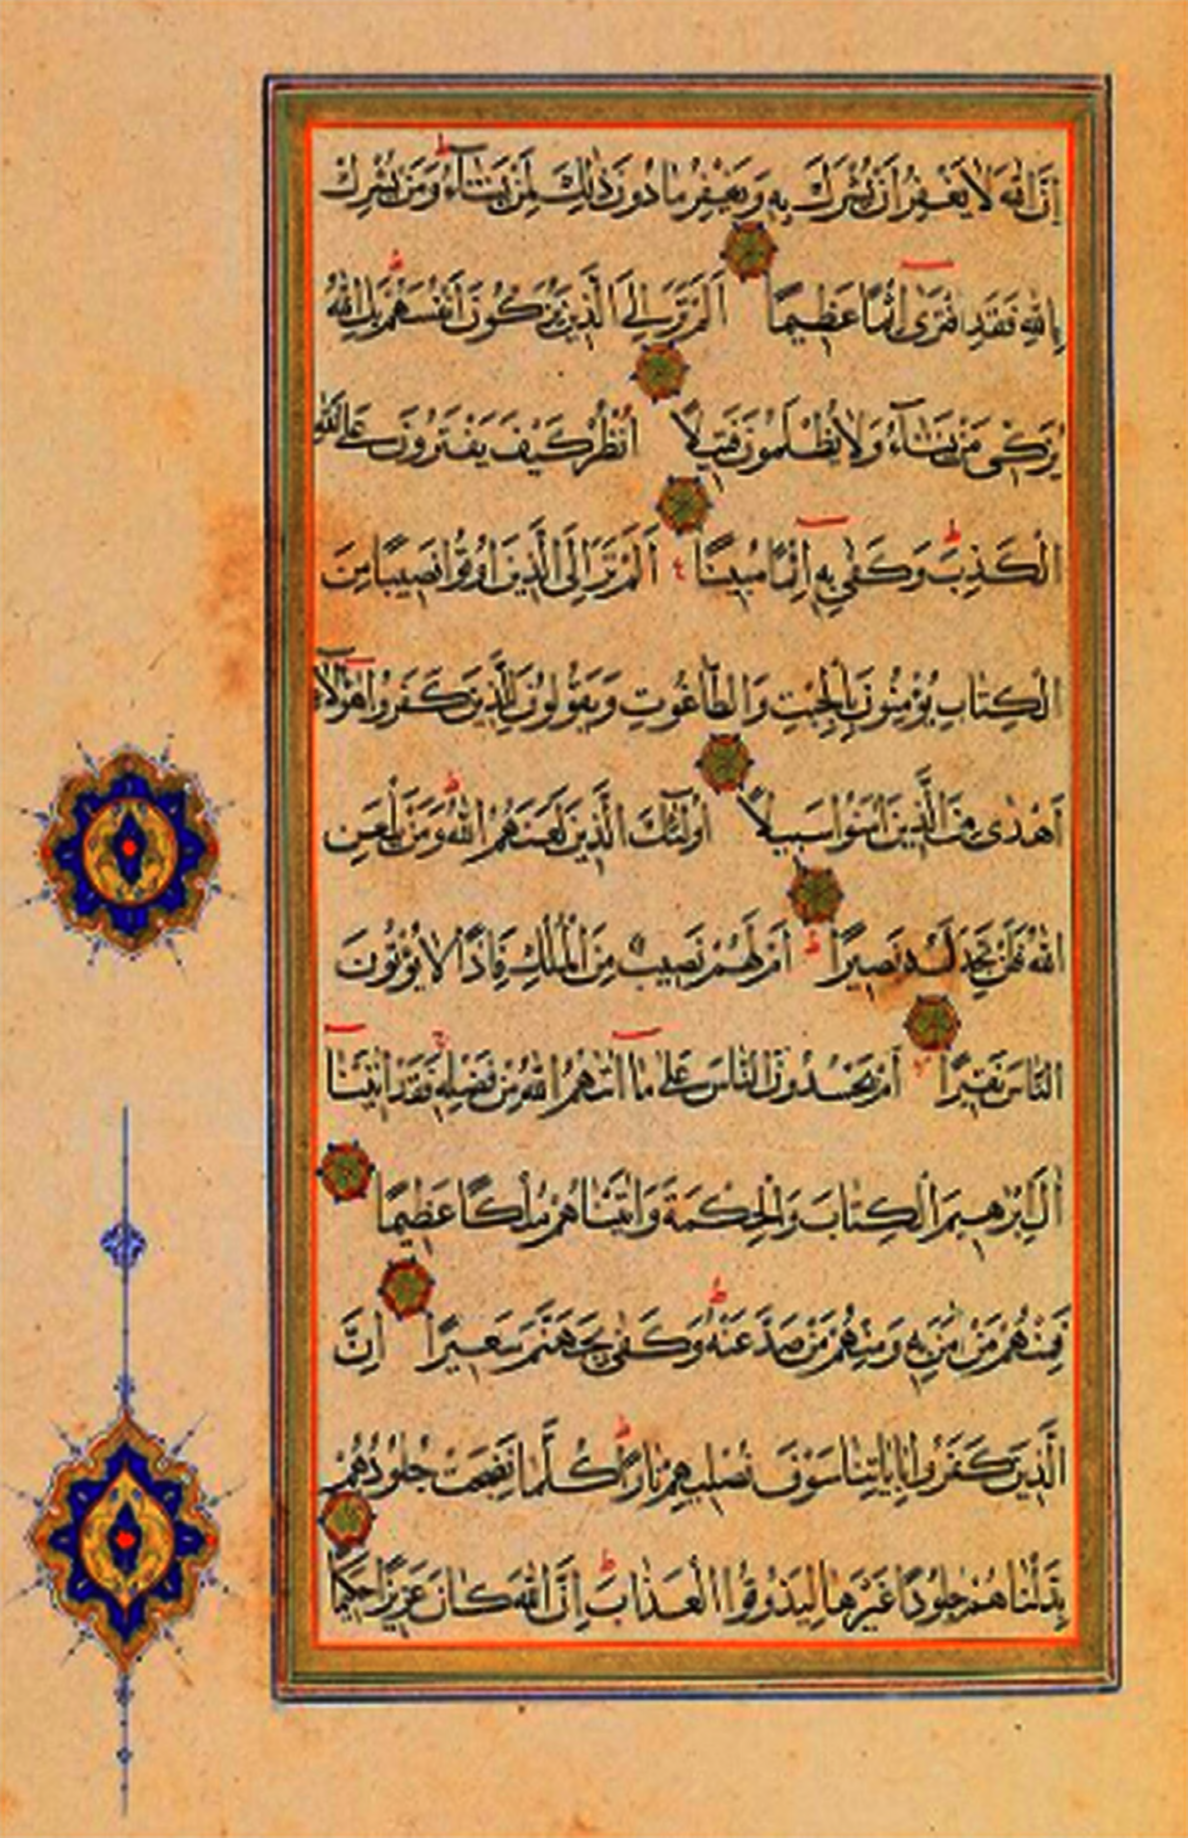 اِنَّ اللهَ لَا يَغْفِرُ اَنْ يُشْرَكَ بِهِ وَيَغْفِرُ مَا دُونَ ذٰلِكَ لِمَنْ يَشَآءُ ط وَمَنْ يُشْرِكْ
بِاللهِ فَقَدِ افْتَرٰى اِثْمًا عَظِيمًا اَلَمْ تَرَ اِلَى الَّذِينَ يُزَكُّونَ اَنْفُسَهُمْ ط بَلِ اللهُ
يُزَكِّى مَنْ يَشَآءُ وَلَا يُظْلَمُونَ فَتِيلًا اُنْظُرْ كَيْفَ يَفْتَرُونَ عَلَى اللهِ
الْكَذِبَ ط وَكَفٰى بِهِ اِثْمًا مُبِينًا ع اَلَمْ تَرَ اِلَى الَّذِينَ اُوتُوا نَصِيبًا مِنَ
الْكِتَابِ يُؤْمِنُونَ بِالْجِبْتِ وَالطَّاغُوتِ وَيَقُولُونَ لِلَّذِينَ كَفَرُوا هٰؤُلَآءِ
اَهْدٰى مِنَ الَّذِينَ اٰمَنُوا سَبِيلًا اُولٰئِكَ الَّذِينَ لَعَنَهُمُ اللهُ ط وَمَنْ يَلْعَنِ
اللهُ فَلَنْ تَجِدَ لَهُ نَصِيرًا ط اَمْ لَهُمْ نَصِيبٌ مِنَ الْمُلْكِ فَاِذًا لَا يُؤْتُونَ
النَّاسَ نَقِيرًا اَمْ يَحْسُدُونَ النَّاسَ عَلٰى مَا اٰتٰهُمُ اللهُ مِنْ فَضْلِهِ ج فَقَدْ اٰتَيْنَا
اٰلَ اِبْرٰهِيمَ الْكِتَابَ وَالْحِكْمَةَ وَاٰتَيْنَاهُمْ مُلْكًا عَظِيمًا
فَمِنْهُمْ مَنْ اٰمَنَ بِهِ وَمِنْهُمْ مَنْ صَدَّ عَنْهُ ط وَكَفٰى بِجَهَنَّمَ سَعِيرًا اِنَّ
الَّذِينَ كَفَرُوا بِاٰيَاتِنَا سَوْفَ نُصْلِيهِمْ نَارًا ط كُلَّمَا نَضِجَتْ جُلُودُهُمْ
بَدَّلْنَاهُمْ جُلُودًا غَيْرَهَا لِيَذُوقُوا الْعَذَابَ ط اِنَّ اللهَ كَانَ عَزِيزًا حَكِيمًا